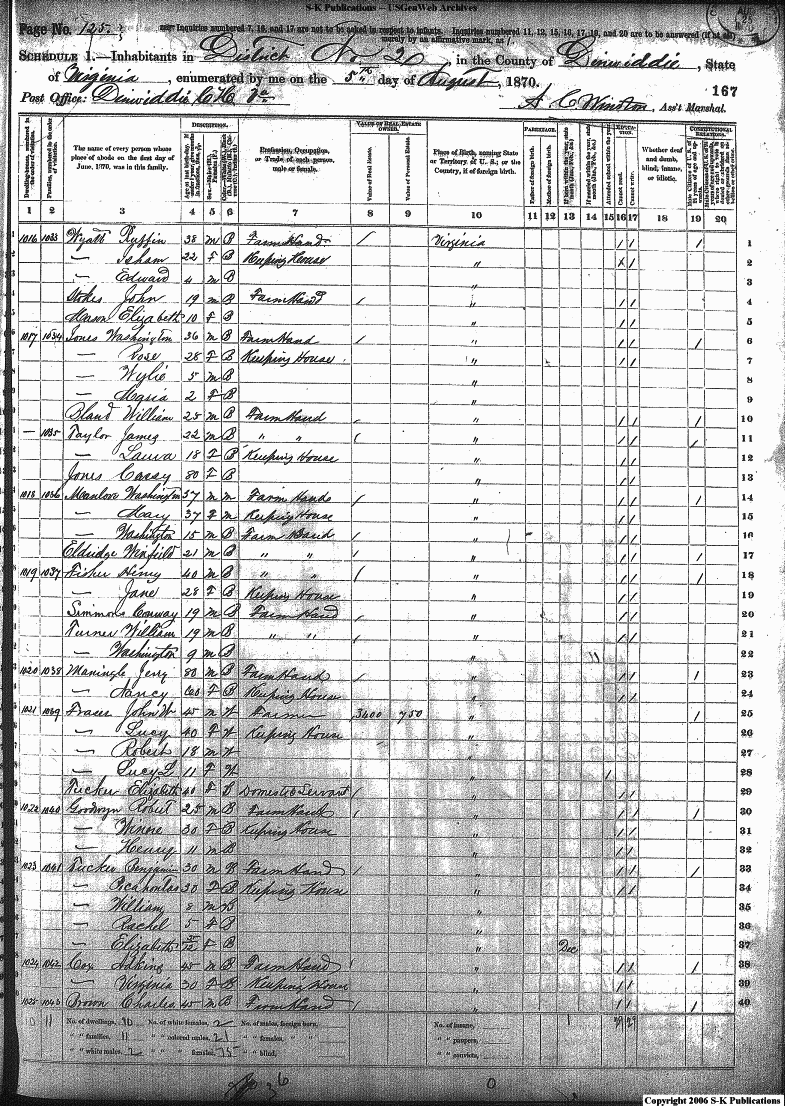 S-K Publications - USGenWeb Archives
Page No. 125
Inquiries numbered 7, 16, and 17 are not to be asked in respect to infants. Inquiries numbered 11, 12, 15, 16, 17, 19, and 20 are to be answered (if at all) merely by an affirmative mark, as /.
SCHEDULE 1.—Inhabitants in District No. 2, in the County of Dinwiddie, State
of Virginia, enumerated by me on the 5th day of August, 1870.
167
Post Office: Dinwiddie C. H. Va
A. C. Winston, Ass't Marshal.
DESCRIPTION.
VALUE OF REAL ESTATE OWNED.
PARENTAGE.
CONSTITUTIONAL RELATIONS.
The name of every person whose place of abode on the first day of June, 1870, was in this family.
Profession, Occupation, or Trade of each person, male or female.
Value of Real Estate.
Value of Personal Estate.
Place of Birth, naming State or Territory of U. S.; or the Country, if of foreign birth.
Father of foreign birth.
Mother of foreign birth.
Attended school within the year.
Cannot read.
Cannot write.
Whether deaf and dumb, blind, insane, or idiotic.
1 2 3 4 5 6 7 8 9 10 11 12 13 14 15 16 17 18 19 20
1 1016 1033 Wyatt Ruffin 38 m B Farm Hand / Virginia / / / 1
2 — Isham 22 F B Keeping House " X / 2
3 — Edward 4 m B " 3
4 Stokes John 19 m B Farm Hand / " / / 4
5 Mason Elizabeth 10 F B " / / 5
6 1017 1034 Jones Washington 36 m B Farm Hand / " / / / 6
7 — Rose 28 F B Keeping House " / / 7
8 — Wylie 5 m B " 8
9 — Maria 2 F B " 9
Bland William 25 m B Farm Hand / " / / / 10
— 1035 Taylor James 22 m B " " / " / / / 11
— Laura 18 F B Keeping House " / / 12
Jones Cassy 80 F B " / / 13
1018 1036 Manlove Washington 57 m m Farm Hands / " / / / 14
— Mary 37 F m Keeping House " / / 15
— Washington 15 m B Farm Hand / " / / 16
Eldridge Winfield 21 m B " " / " / / / 17
1019 1037 Fisher Henry 40 m B " " / " / / / 18
— Jane 28 F B Keeping House " / / 19
Simmons Conway 19 m B Farm Hand / " / / 20
Turner William 19 m B " " / " / / 21
— Washington 9 m B " 22
1020 1038 Maningle Jerry 80 m B Farm Hand / " / / / 23
— Nancy 60 F B Keeping House " / / 24
1021 1039 Fraser John W 45 m W Farmer 3400 750 " / 25
— Lucy 40 F W Keeping House " 26
— Robert 18 m W " 27
— Lucy L 11 F W " / 28
Tucker Elizabeth 40 F B Domestic Servant / " / / 29
1022 1040 Goodwyn Robert 25 m B Farm Hand / " / / / 30
— Winnie 30 F B Keeping House " / / 31
— Henry 11 m B " / / 32
1023 1041 Tucker Benjamin 30 m B Farm Hand / " / / / 33
— Pocahontas 30 F B Keeping House " / / 34
— William 8 m B " 35
— Rachel 5 F B " 36
— Elizabeth F B " Dec 37
1024 1042 Cox Adkins 45 m B Farm Hand / " / / / 38
— Virginia 30 F B Keeping House " / / 39
1025 1043 Brown Charles 45 m B Farm Hand " / / / 40
10 11 No. of dwellings, 10 No. of white females, 2 No. of males, foreign born, No. of insane, 1 29 29
" " families, 11 " " colored males, 21 " " females, " " paupers,
" " white males, 2 " " females, 15 " " blind, " " convicts,
0
Copyright 2006 S-K Publications